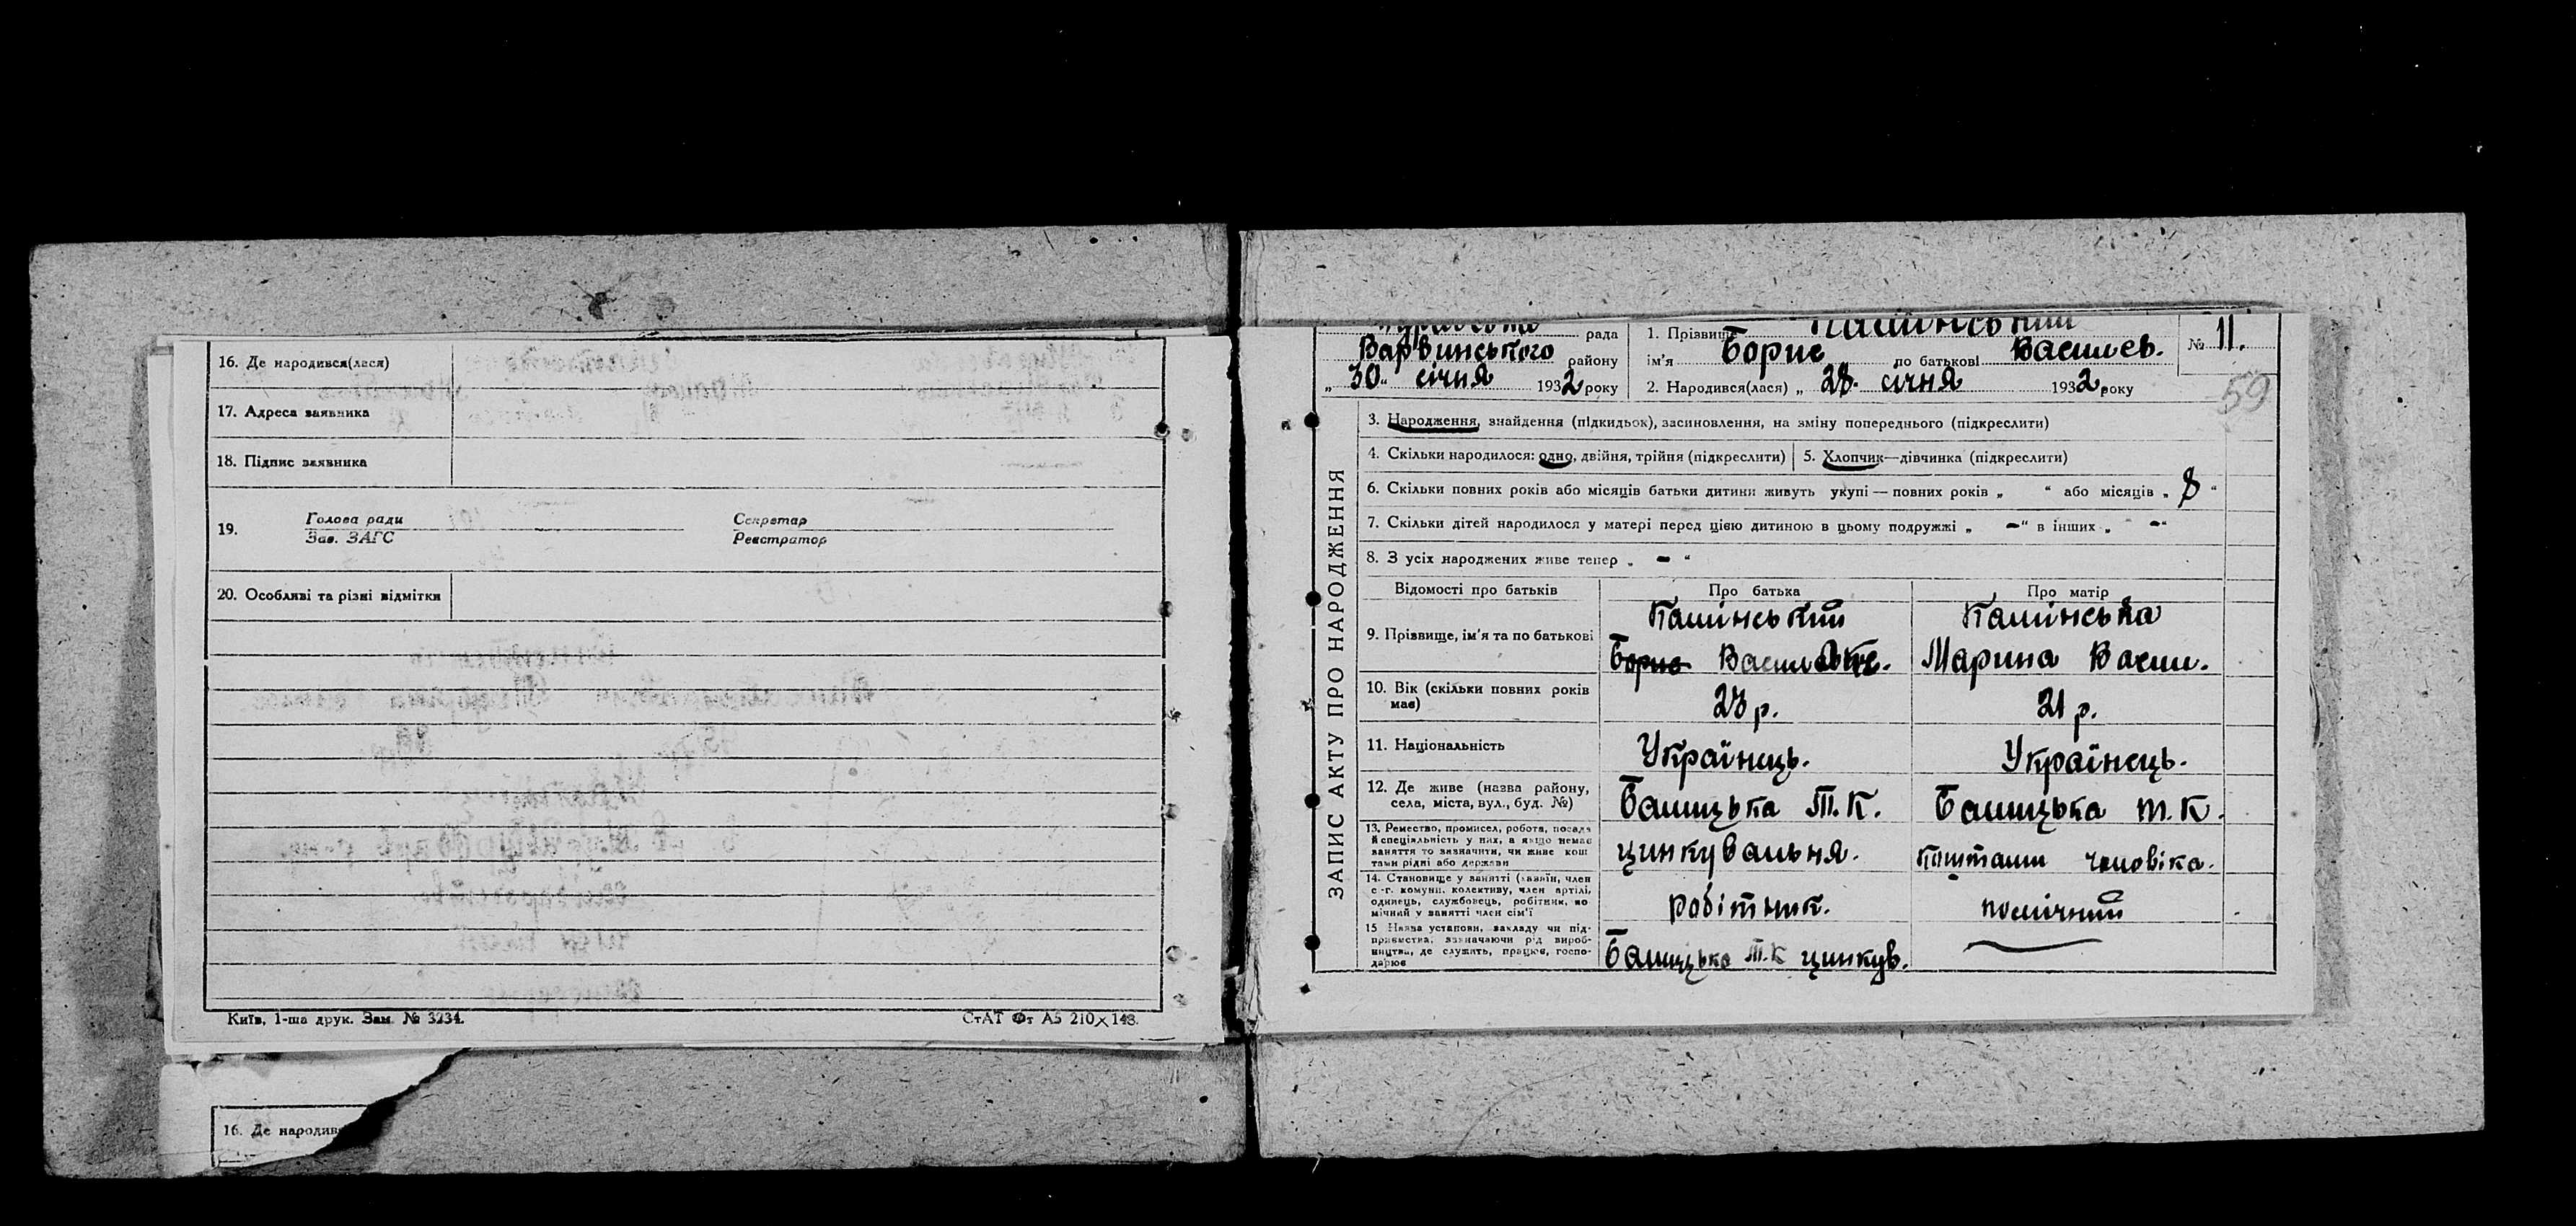 16. Де народився(лася)
17. Адреса заявника
18. Підпис заявника
19. Голова ради Секретар
Зав. ЗАГС Реєстратор
20. Особливі та різні відмітки
Київ, 1-ша друк. Зам. № 3234.
СтАТ Фт А5 210×148.
16. Де народив
рада
Варвинського району
„ 30 “ січня 1932 року
1. Прізвище Камінський
ім'я Борис по батькові Васильев.
2. Народився(лася) „ 28. січня 1932 року
№ 11.
59
ЗАПИС АКТУ ПРО НАРОДЖЕННЯ
3. Народження, знайдення (підкидьок), засиновлення, на зміну попереднього (підкреслити)
4. Скільки народилося: одно, двійня, трійня (підкреслити)
5. Хлопчик—дівчинка (підкреслити)
6. Скільки повних років або місяців батьки дитини живуть укупі — повних років „ “ або місяців „ 8 “
7. Скільки дітей народилося у матері перед цією дитиною в цьому подружжі „ — “ в інших „ — “
8. З усіх народжених живе тепер „ — “
Відомості про батьків Про батька Про матір
9. Прізвище, ім'я та по батькові
Камінський
Борис Василь
Камінська
Марина Васил.
10. Вік (скільки повних років
має)
23 р. 21 р.
11. Національність Українець. Українець.
12. Де живе (назва району,
села, міста, вул., буд. №)
Т.К. Т.К.
13. Ремество, промисел, робота, посада
й спеціяльність у них, а якщо немає
заняття то зазначити, чи живе кош
тами рідні або держави
цинкувальня. коштами чоловіка.
14. Становище у занятті (хазяїн, член
с.-г. комуни, колективу, член артілі,
одинець, службовець, робітник, по
мічний у занятті член сім'ї
робітник. помічний
15 Назва установи, закладу чи під-
приємства, зазначаючи рід вироб-
ництва, де служить, працює, госпо-
дарює
Т.К цинкув.